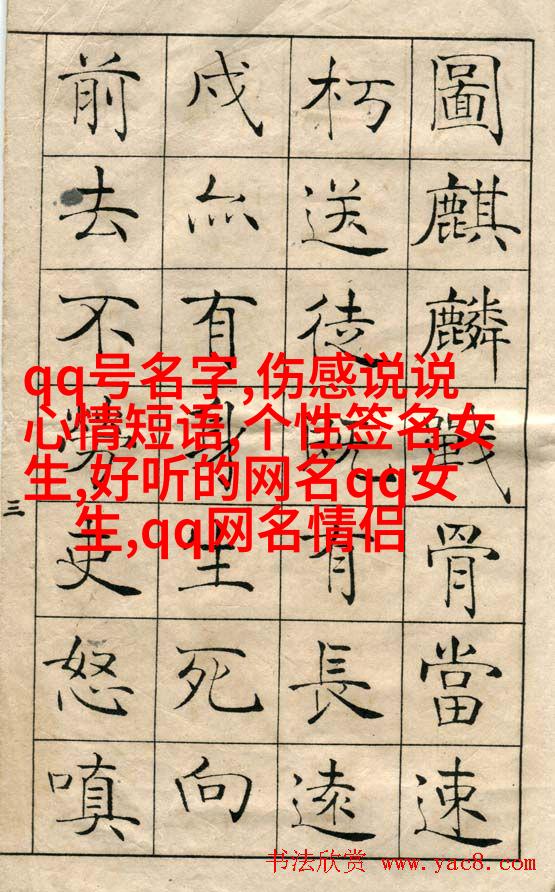 圖麒麟戰骨當速
朽送徒既有長遠
戍亦有身生死向
前去不勞吏怒嗔
三
qq号名字,伤感说说
心情短语,个性签名女
生,好听的网名qq女
生,qq网名情侣
书法欣赏 www.yac8.com